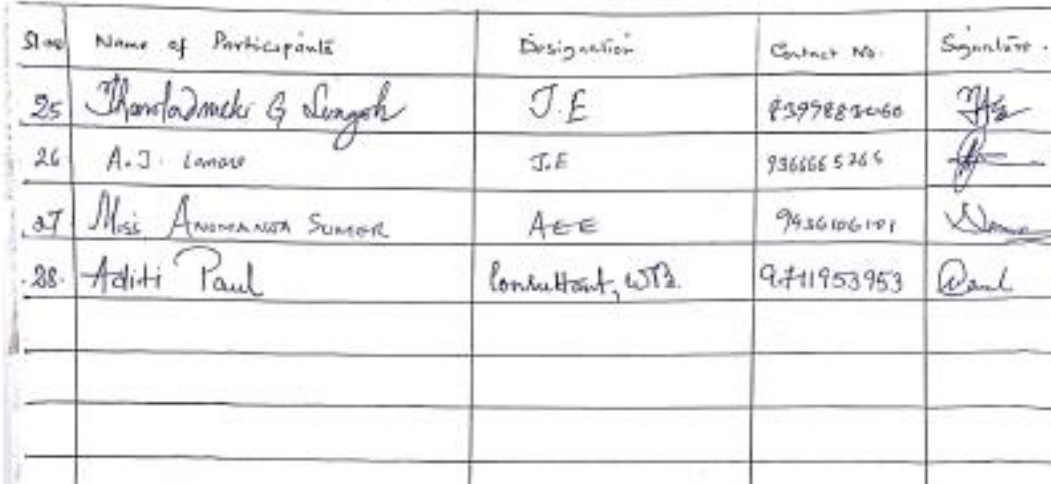 Sl no Name of Participants Designation Contact No. Signature.
25 G Lyngoh J.E
26 A.J. Lamare J.E 9366665265
27 Miss Sumer AEE 9436106101
28. Aditi Paul Consultant, WB. 9711953953 Paul